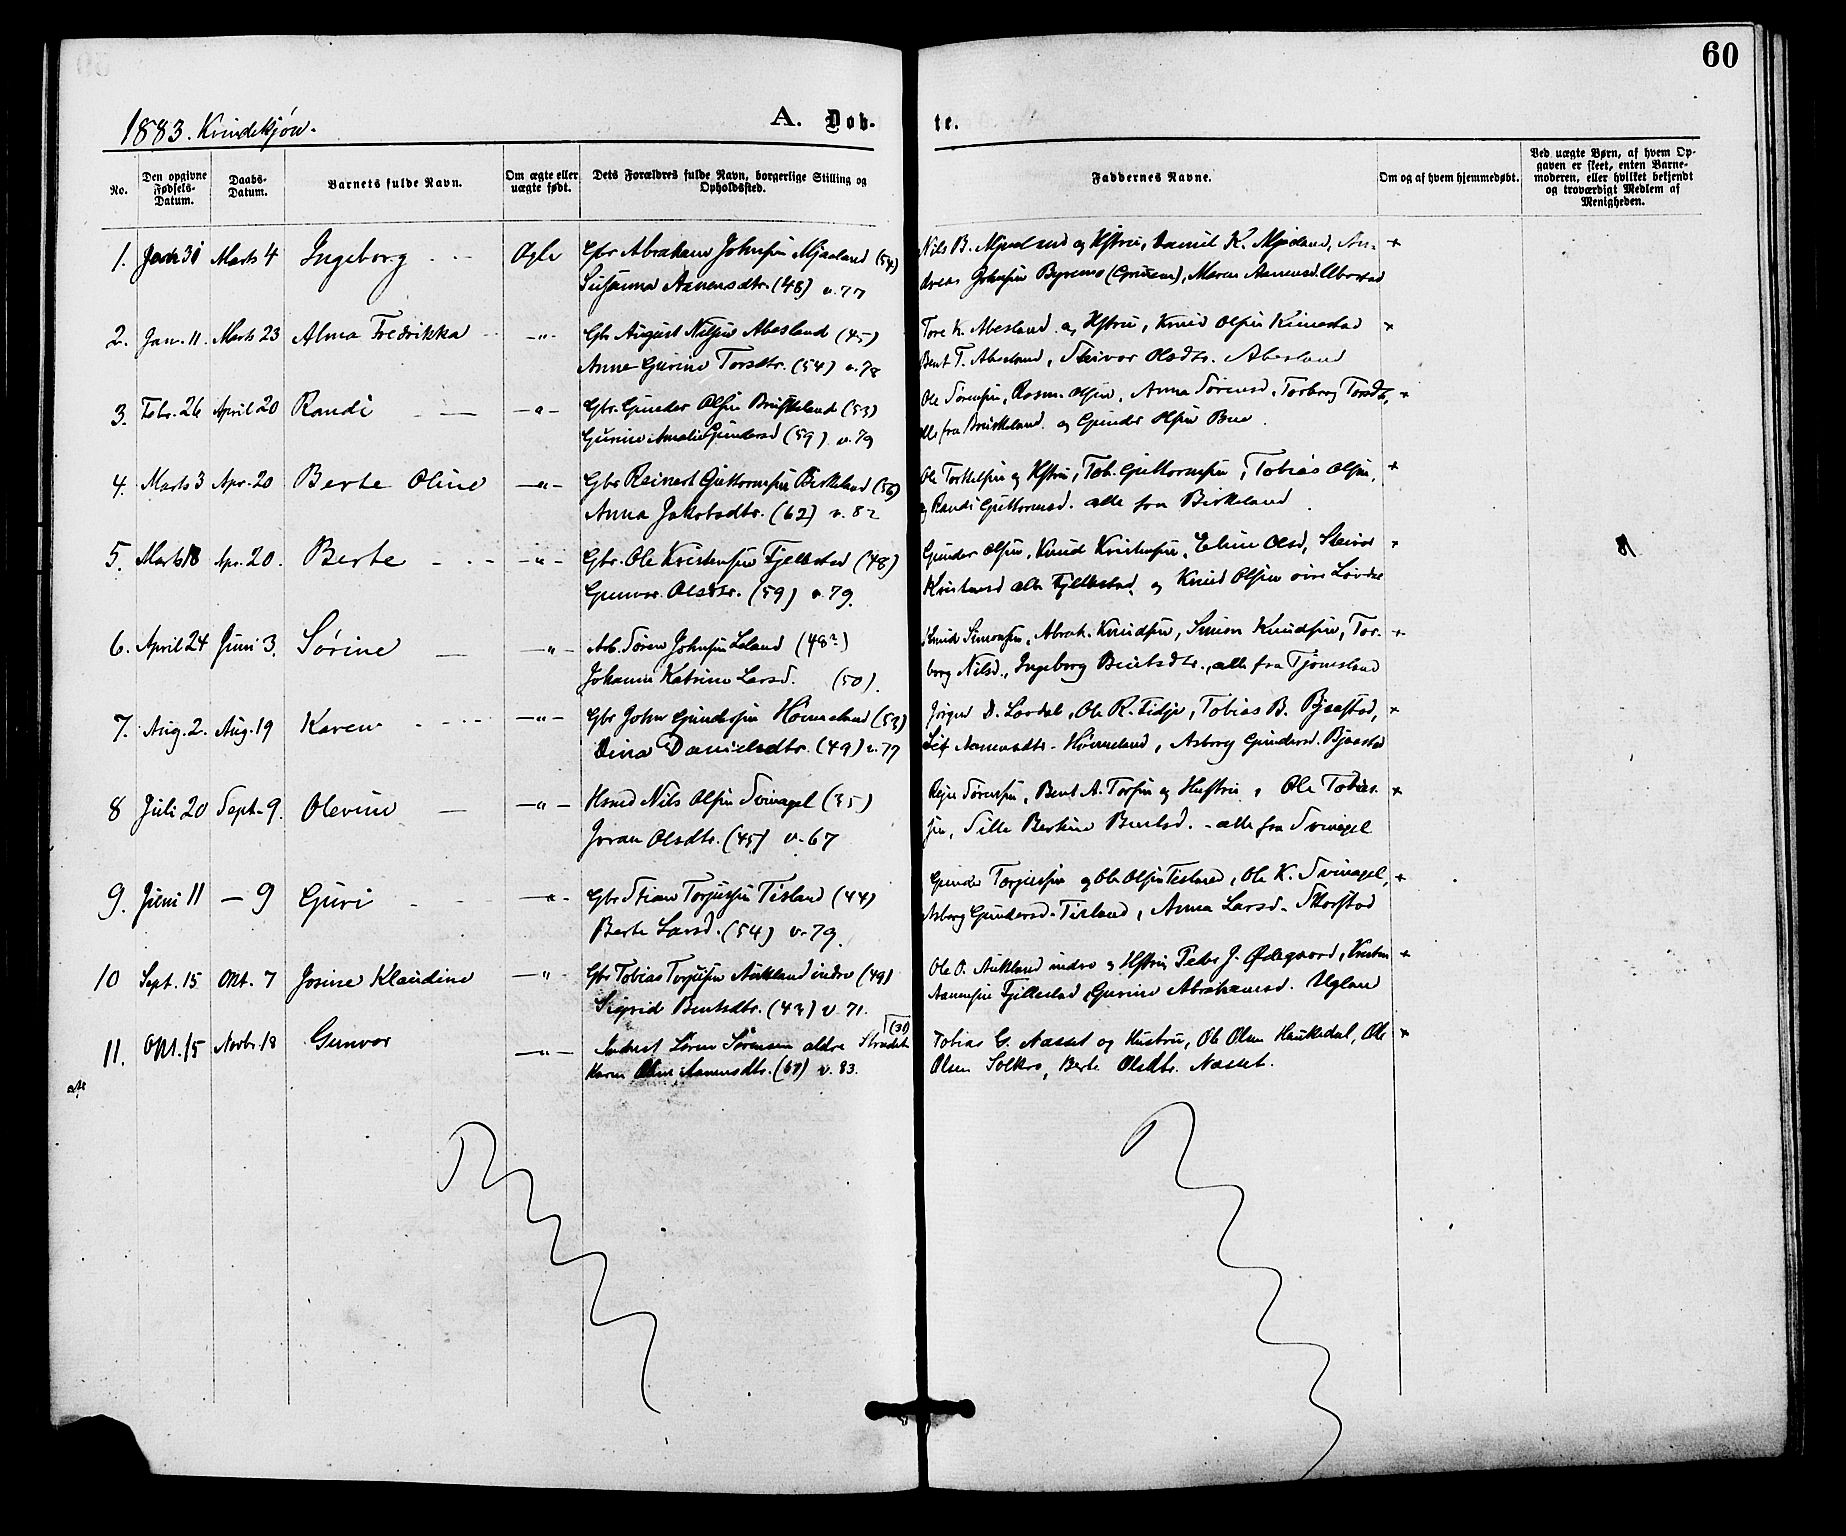 60
1883. Kvindekjøn.
A. Døb-
te.
No.
Den opgivne Fødsels-Datum.
Daabs-Datum.
Barnets fulde Navn.
Om ægte eller uægte født.
Dets Forældres fulde Navn, borgerlige Stilling og Opholdssted.
Faddernes Navne.
Om og af hvem hjemmedøbt.
Ved uægte Børn, af hvem Opgaven er skeet, enten Barnemoderen, eller hvilket bekjendt og troværdigt Medlem af Menigheden.
1. 31 Marts 4 Ingeborg Ægte Gbr Abraham Johnsen Mjaaland (54) Nils B. Mjaaland og Hstru, Daniel K. Mjaaland, An- +
Susanna Aanensdtr. (48) v. 77 dreas Johnsen Byremo
2. Jan. 11. Marts 23 Alma Fredrikka -"- Gbr August Nilsen Abesland (45) Tore K. Abesland og Hstru, Knud Olsen Kimestad +
Anne Gurine Torsdtr. (54) v. 78 Bent T. Abesland, Steivor Olsdtr. Abesland
3. Febr. 26 April 20 Randi -"- Gbr. Gunder Olsen Bruskeland (53) Ole Sørensen, Rasm. Olsen, Anna Sørensd., Torborg Torsdtr, +
Gurine Amalie Gundersd (59) v. 79 alle fra Bruskeland og Gunder Olsen Bue.
4. Marts 3 Apr. 20 Berte Oline -"- Gbr Reinert Guttormsen Birkeland (56) Ole Torkelsen og Hstru, Tob. Guttormsen, Tobias Olsen, +
Anna Jakobsdtr. (62) v. 82 og Randi Guttormsd. alle fra Birkeland.
5. Marts 18 Apr. 20. Berte -"- Gbr. Ole Kristensen Fjellestad (48) Gunder Olsen, Knud Kristensen, Eline Olsd, Steivor +
Gunvor Olsdtr. (59) v. 79. Kristensd alle Fjellestad, og Knud Olsen øvre Løvdal
6. April 24 Juni 3. Sørine -"- Arb. Søren Johnsen Leland (48?) Knud Simonsen, Abrah. Knudsen, Simon Knudsen, Tor- +
Johanne Katrine Larsd. (50). borg Nilsd., Ingeborg Bentsdtr., alle fra Tjomsland
7. Aug. 2. Aug. 19 Karen -"- Gbr John Gundersen Hommeland (53) Jørgen D. Løvdal, Ole R. Tidje, Tobias B. Bjaastad, +
Dina Danielsdtr. (49) v. 77 Aanensdtr. Hommeland, Asborg Gundersd. Bjaastad
8 Juli 20 Sept. 9. Olevine -"- Hsmd Nils Olsen Svinagel (35) Reier Sørensen, Bent A. Torsen og Hustru, Ole Tobias- +
Joran Olsdtr. (45) v. 67 sen, Sille Bertine Bentsd. - alle fra Svinagel
9. Juni 11 — 9 Guri -"- Gbr Stian Torjussen Tisland (44) Gunder Torjussen og Ole Olsen Tisland, Ole K. Svinagel, +
Berte Larsd. (54) v. 79. Asborg Gundersd. Tisland, Anna Larsd.
10 Sept. 15 Okt. 7 Josine Klaudine -"- Gbr Tobias Torjussen Aukland indre (49) Ole O. Aukland indre og Hstru, Peder J. Ødegaard, +
Sigrid Bentsdtr. (43) v. 71. Aanensen Fjellestad, Gurine Abrahamsd. Ugland
11. Okt. 15 Novbr. 18 Gunvor -"- Søren Sørensen (31) Tobias G. Nasset og Hustru, Ole Olsen Haukedal, Ole +
Karen Aanensdtr. v. 83. Olsen Solkro, Berte Olsdtr. Nasset.